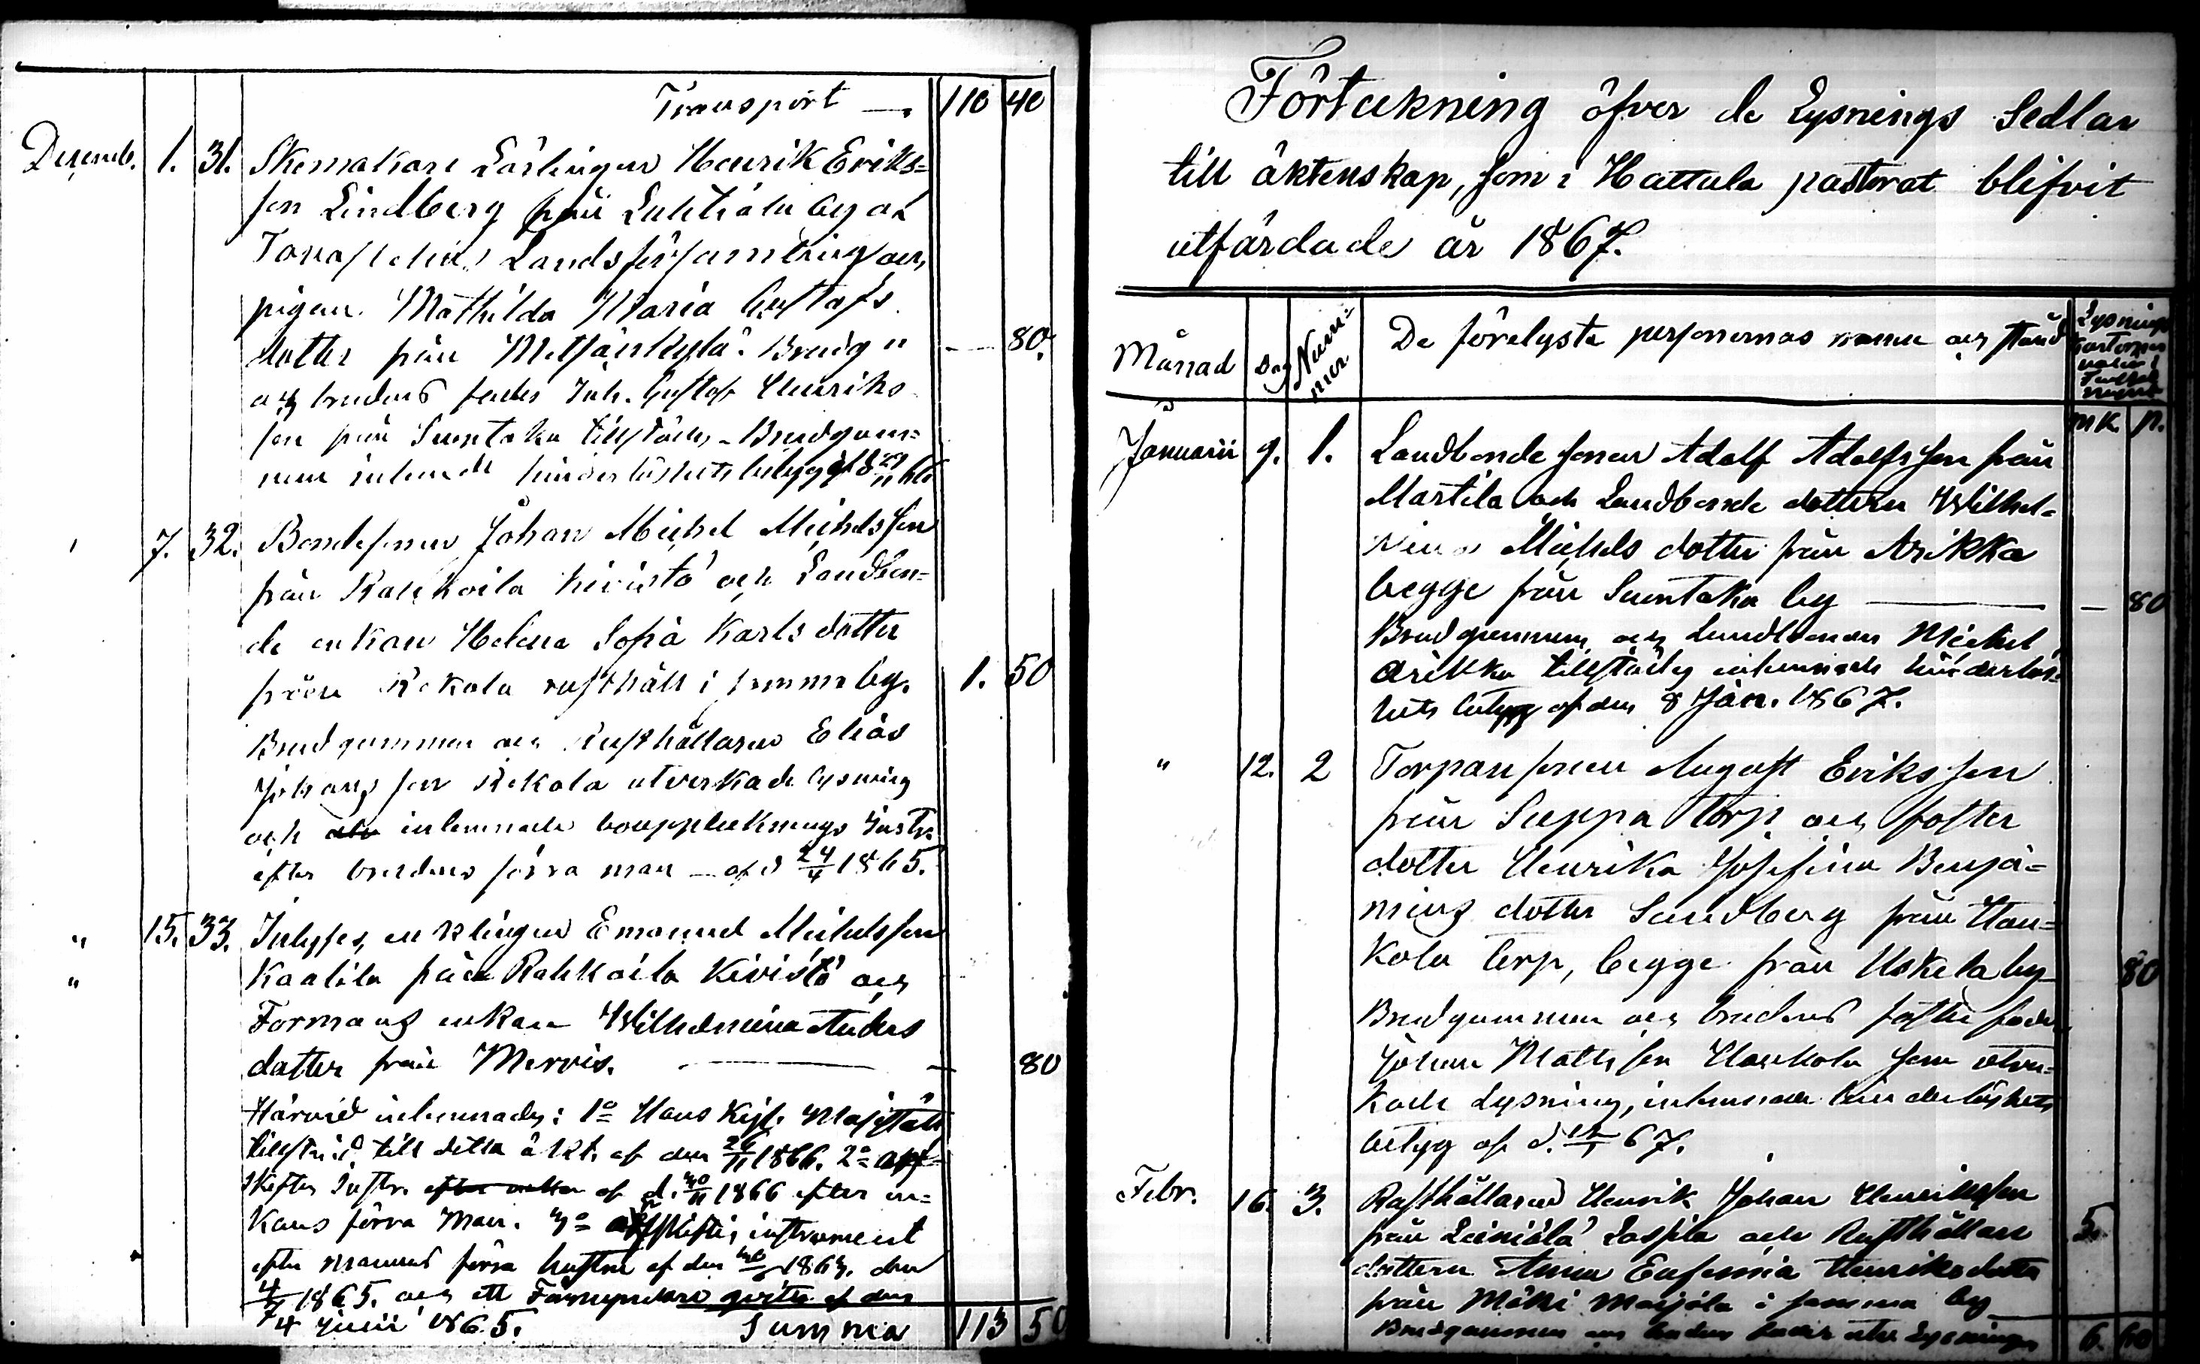 Transport — 110 40
Decemb. 1. 31. Skomakare Lärlingen Henrik Eriks=
son Lindberg från Luhtiala by af
Tavastehus Landsförsamling och
pigan Mathilda Maria Gustafs
dotter från Metsänkylä. Brudgu — 80.
och brudens fader Joh. Gustaf Henriks
son från Suontaka tillstädes. Brudgum=
men inlemnade hinderlöshets betyg af d. 29/11 66
7. 32. Bondesonen Johan Michel Michelsson
från Rahkoila Kivistö och Landbon=
de enkan Helena Sofia Karls dotter
från Rekola rusthåll i samma by. 1. 50
Brudgummen och Rusthållaren Elias
Johansson Rekola utverkade lysning
och inlemnade bouppteknings Instr.
efter brudens förra man — af d 24/4 1865.
" 15. 33. Inhyses enklingen Emanuel Michelsson
" Kaalila från Rahkoila Kivistö och
Formans enkan Wilhelmina Anders
dotter från Mervis. — 80
Härvid inlemnades: 1o Hans Kejs. Majestäts
tillstånd till detta äkt. af den 26/11 1866. 2o af=
skiftes Instr. af d. 30/11 1866 efter en=
kans förra Man. 3o afskiftes instrument
efter mannens förra hustru af den 1863. den
4/7 1865. och ett Förmyndare af den
4 Junii 1865. Summa 113 50
Förtekning öfver de Lysnings Sedlar
till äktenskap, som i Hattula pastorat blifvit
utfärdade år 1867.
Månad Dag Num=
mer De förelyste personernas namn och stånd Lysnings
mk p.
Januarii 9. 1. Landbonde sonen Adolf Adolfsson från
Martila och Landbonde dottern Wilhel-
mina Michels dotter från Arikka
begge från Suontaka by — 80
Brudgummen och Landbonden Michel
Arikka tillstädes inlemnade hinderlös=
hets betyg af den 8 Jan. 1867.
" 12. 2 Torpare sonen August Eriksson
från Seppa torp och foster
dotter Henrika Josefina Benja=
mins dotter Sandberg från Hau=
kola torp, begge från Uskela by 80
Brudgummen och brudens foster fader
Johan Matsson Haukola som utver=
kade Lysning, inlemnade hinderlöshets
betyg af d. 12/1 67.
Febr. 16. 3. Rusthållaren Henrik Johan Henriksson
från Leiniälä Laspila och Rusthållare 5.
dottern Anna Eufemia Henriks dotter
från Mäki Marjola i samma by
Brudgummen och brudens fader utv. Lysningen 6. 60